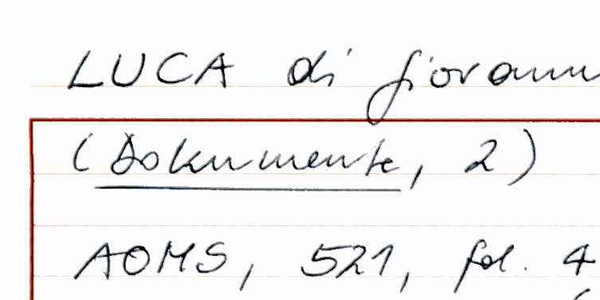 LUCA di Giovann
(Dokumente, 2)
AOMS, 521, fol. 4